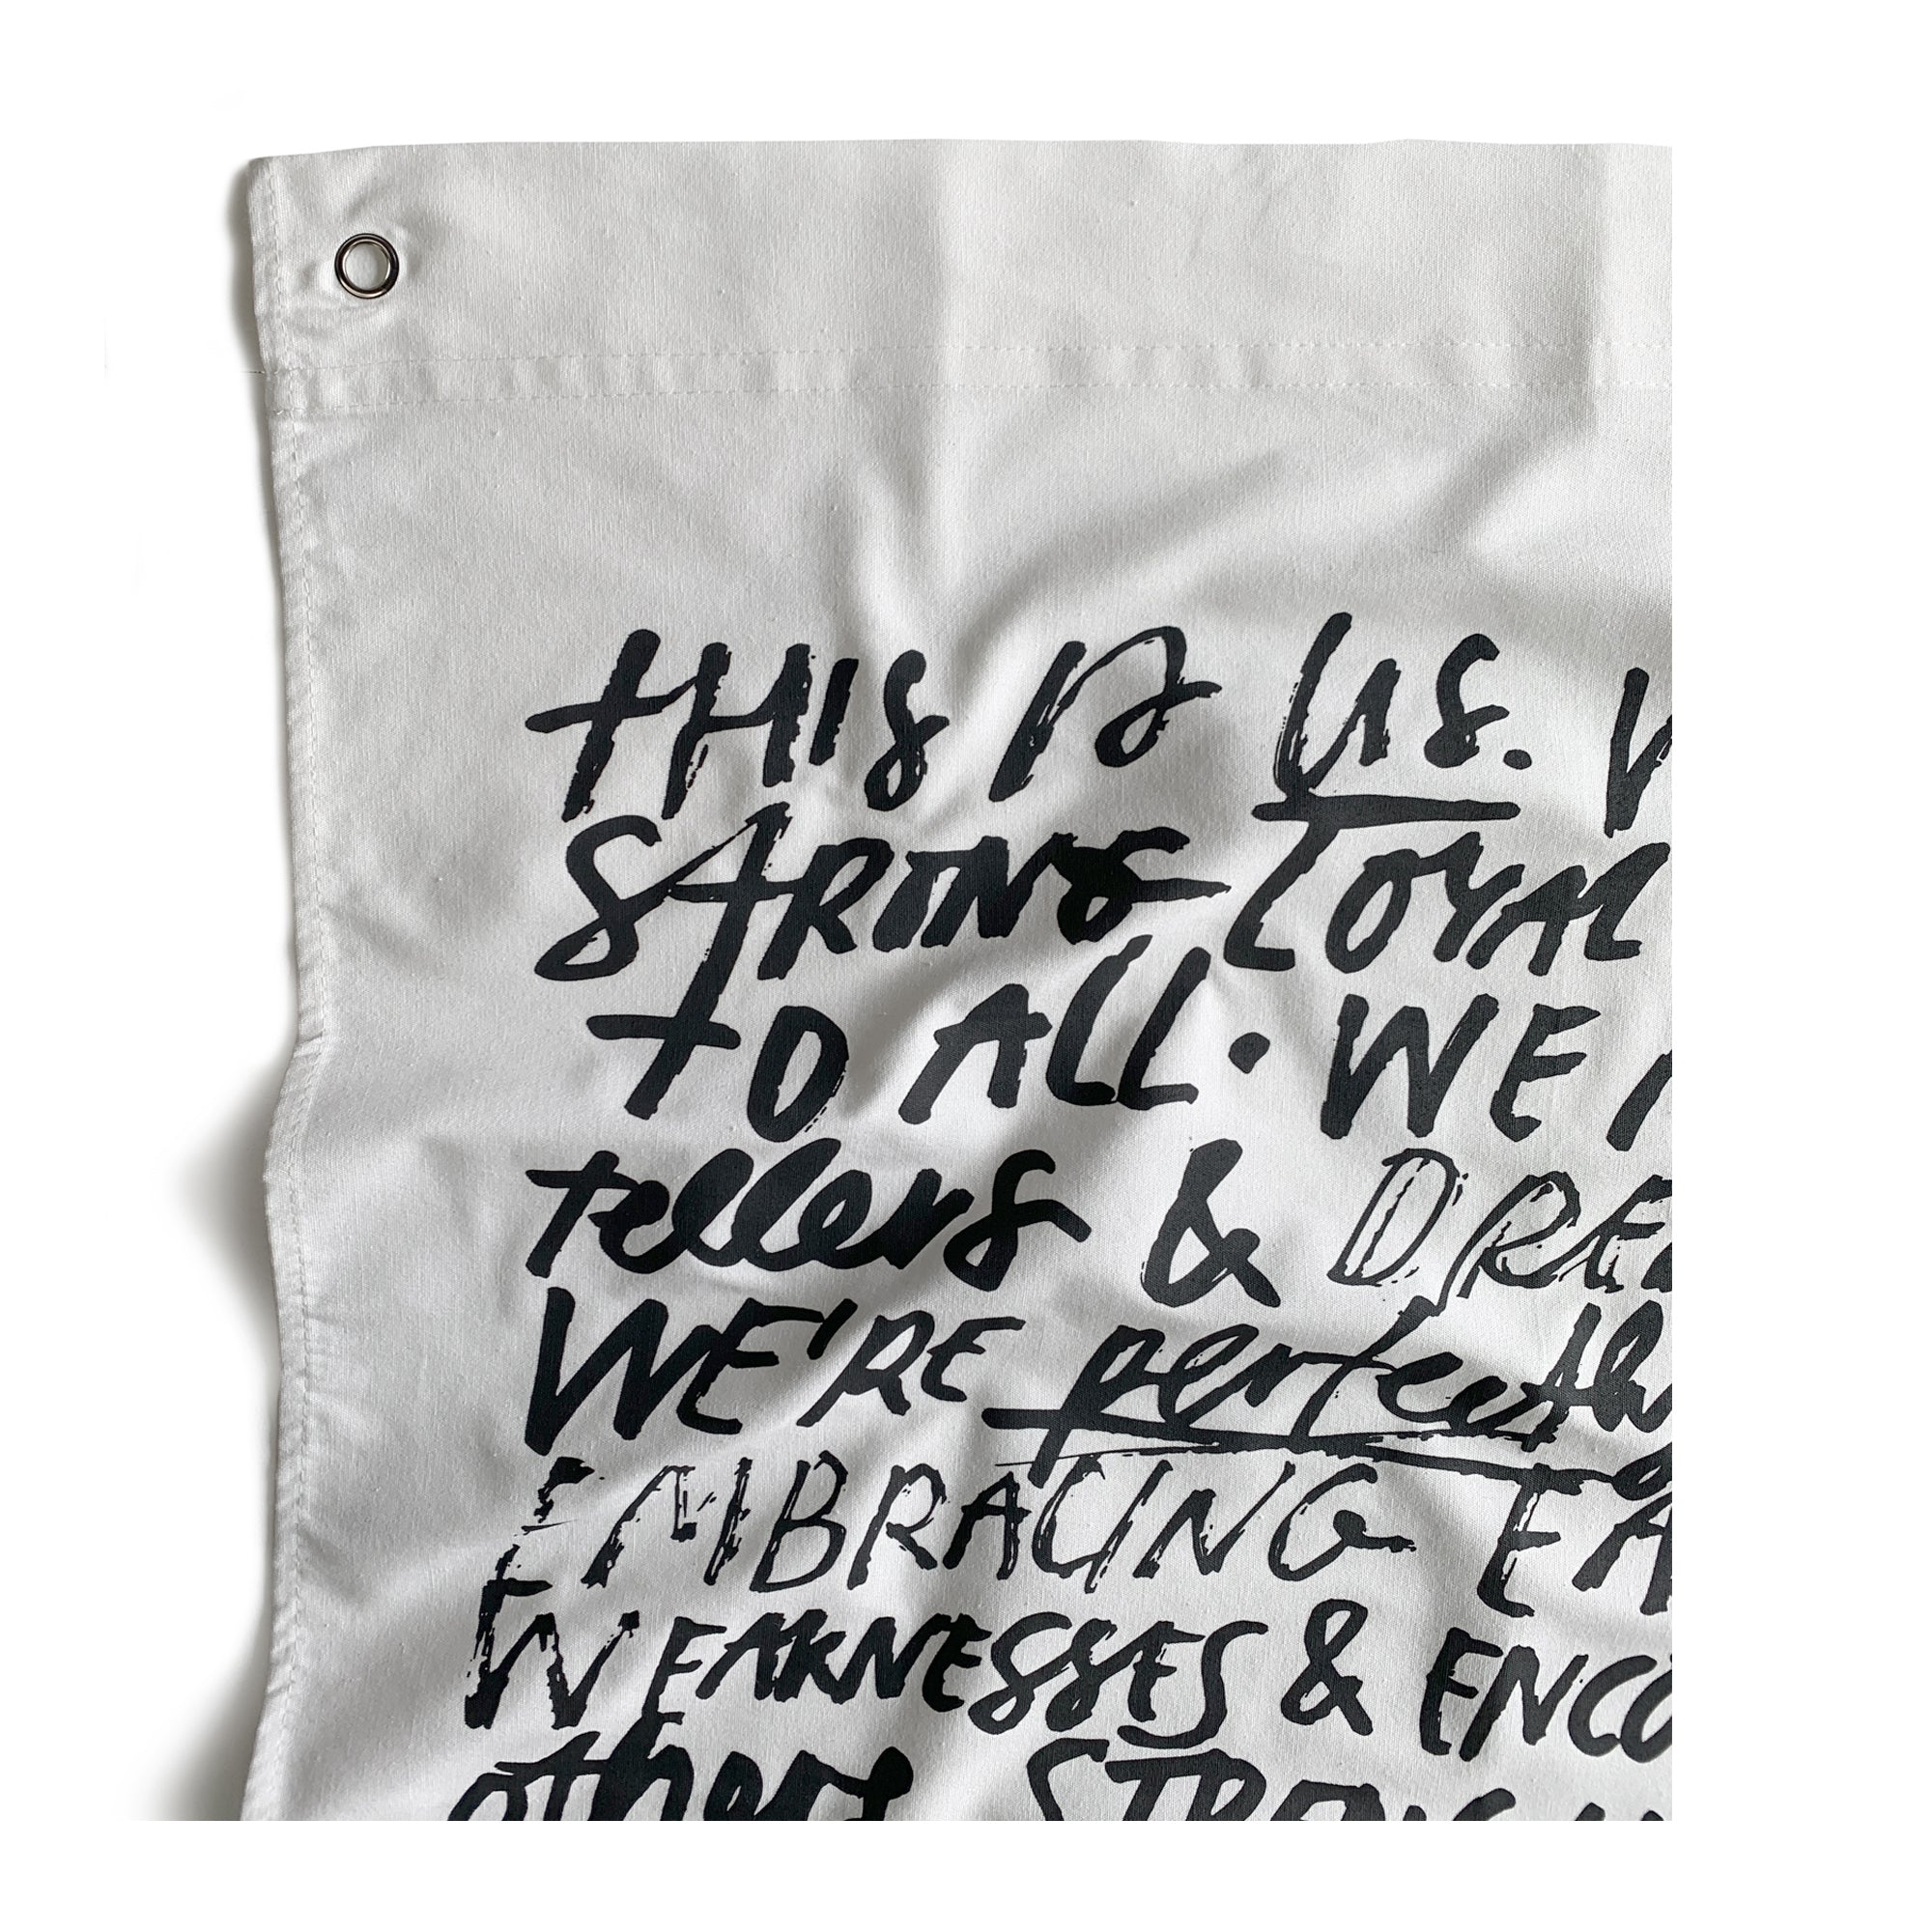 THIS IS US. W
STRONG LOYAL
TO ALL. WE
tellers & DREA
WE'RE perfectly
EMBRACING EA
WEAKNESSES & ENCO
others STRENG